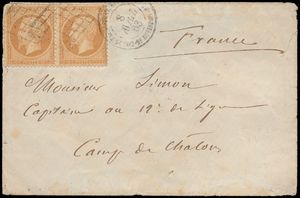 France
Monsieur Simon
Capitaine au 12e de Ligne
Camp de Châlons